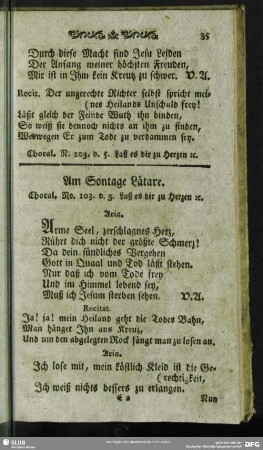 35
Durch diese Macht sind Jesu Leiden
Der Anfang meiner höchsten Freuden,
Mir ist in Ihm kein Kreutz zu schwer. V.A.
Recit. Der ungerechte Richter selbst spricht mei-
(nes Heilands Unschuld frey!
Läßt gleich der Feinde Wuth ihn binden,
So weiß sie dennoch nichts an ihm zu finden,
Weswegen Er zum Tode zu verdammen sey.
Choral. N. 103. v. 5. Laß es dir zu Herzen ꝛc.
Am Sontage Lätare.
Choral. No. 103. v. 5. Laß es dir zu Herzen ꝛc.
Aria.
Arme Seel, zerschlagnes Herz,
Rührt dich nicht der größte Schmerz!
Da dein sündliches Vergehen
Gott in Quaal und Tod läßt stehen.
Nur daß ich vom Tode frey
Und im Himmel lebend sey,
Muß ich Jesum sterben sehen. V.A.
Recitat.
Ja! ja! mein Heiland geht die Todes Bahn,
Man hänget Ihn ans Kreuz,
Und um den abgelegten Rock fängt man zu losen an.
Aria.
Ich lose mit, mein köstlich Kleid ist die Ge-
(rechtigkeit,
Ich weiß nichts bessers zu erlangen.
E 2 Nun
SLUB